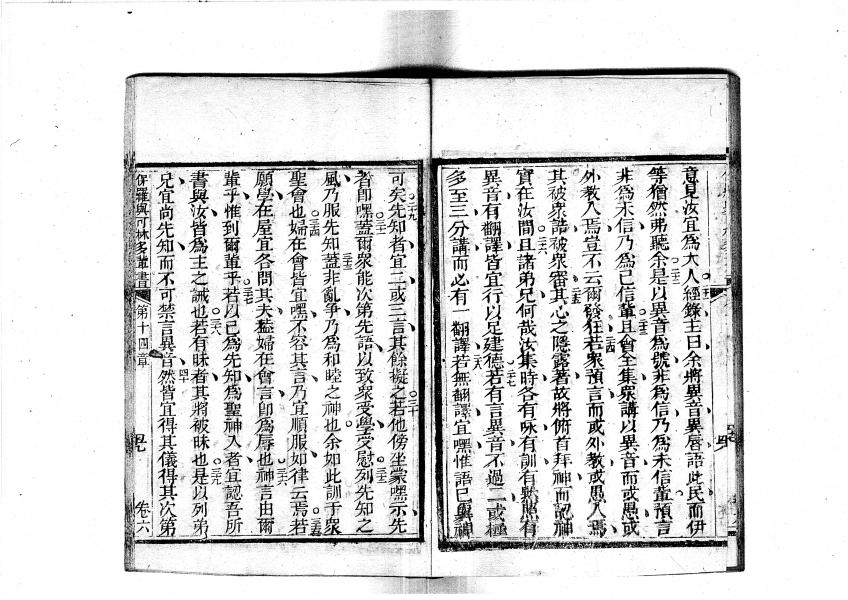 意見汝宜為大人經錄主曰余將異音異唇語此民而伊
等猶然弗聽余是以異音為號非為信乃為未信輩預言
非為未信乃為已信輩且會全集衆講以異音而或愚或
外教人焉豈不云爾發狂若衆預言而或外教或愚人焉
其被衆諭被衆審其心之隱露著故將俯首拜神而認神
實在汝間且諸弟兄何哉汝集時各有咏有訓有默照有
異音有翻譯皆宜行以足建德若有言異音不過二或極
多至三分講而必有一翻譯若無翻譯宜嘿惟語己與神
可矣先知者宜二或三言其餘擬之若他傍坐蒙嘿示先
者即嘿蓋爾衆能次第先語以致衆受學受慰列先知之
風乃服先知蓋非亂爭乃為和睦之神也余如此訓于衆
聖會也婦在會皆宜嘿不容其言乃宜順服如律云焉若
願學在屋宜各問其夫蓋婦在會言即為辱也神言由爾
輩乎惟到爾輩乎若以己為先知為聖神入者宜認吾所
書與汝皆為主之誡也若有昧者其將被昧也是以列弟
兄宜尚先知而不可禁言異音然皆宜得其儀得其次第
保羅與可林多輩書 第十四章 卷六